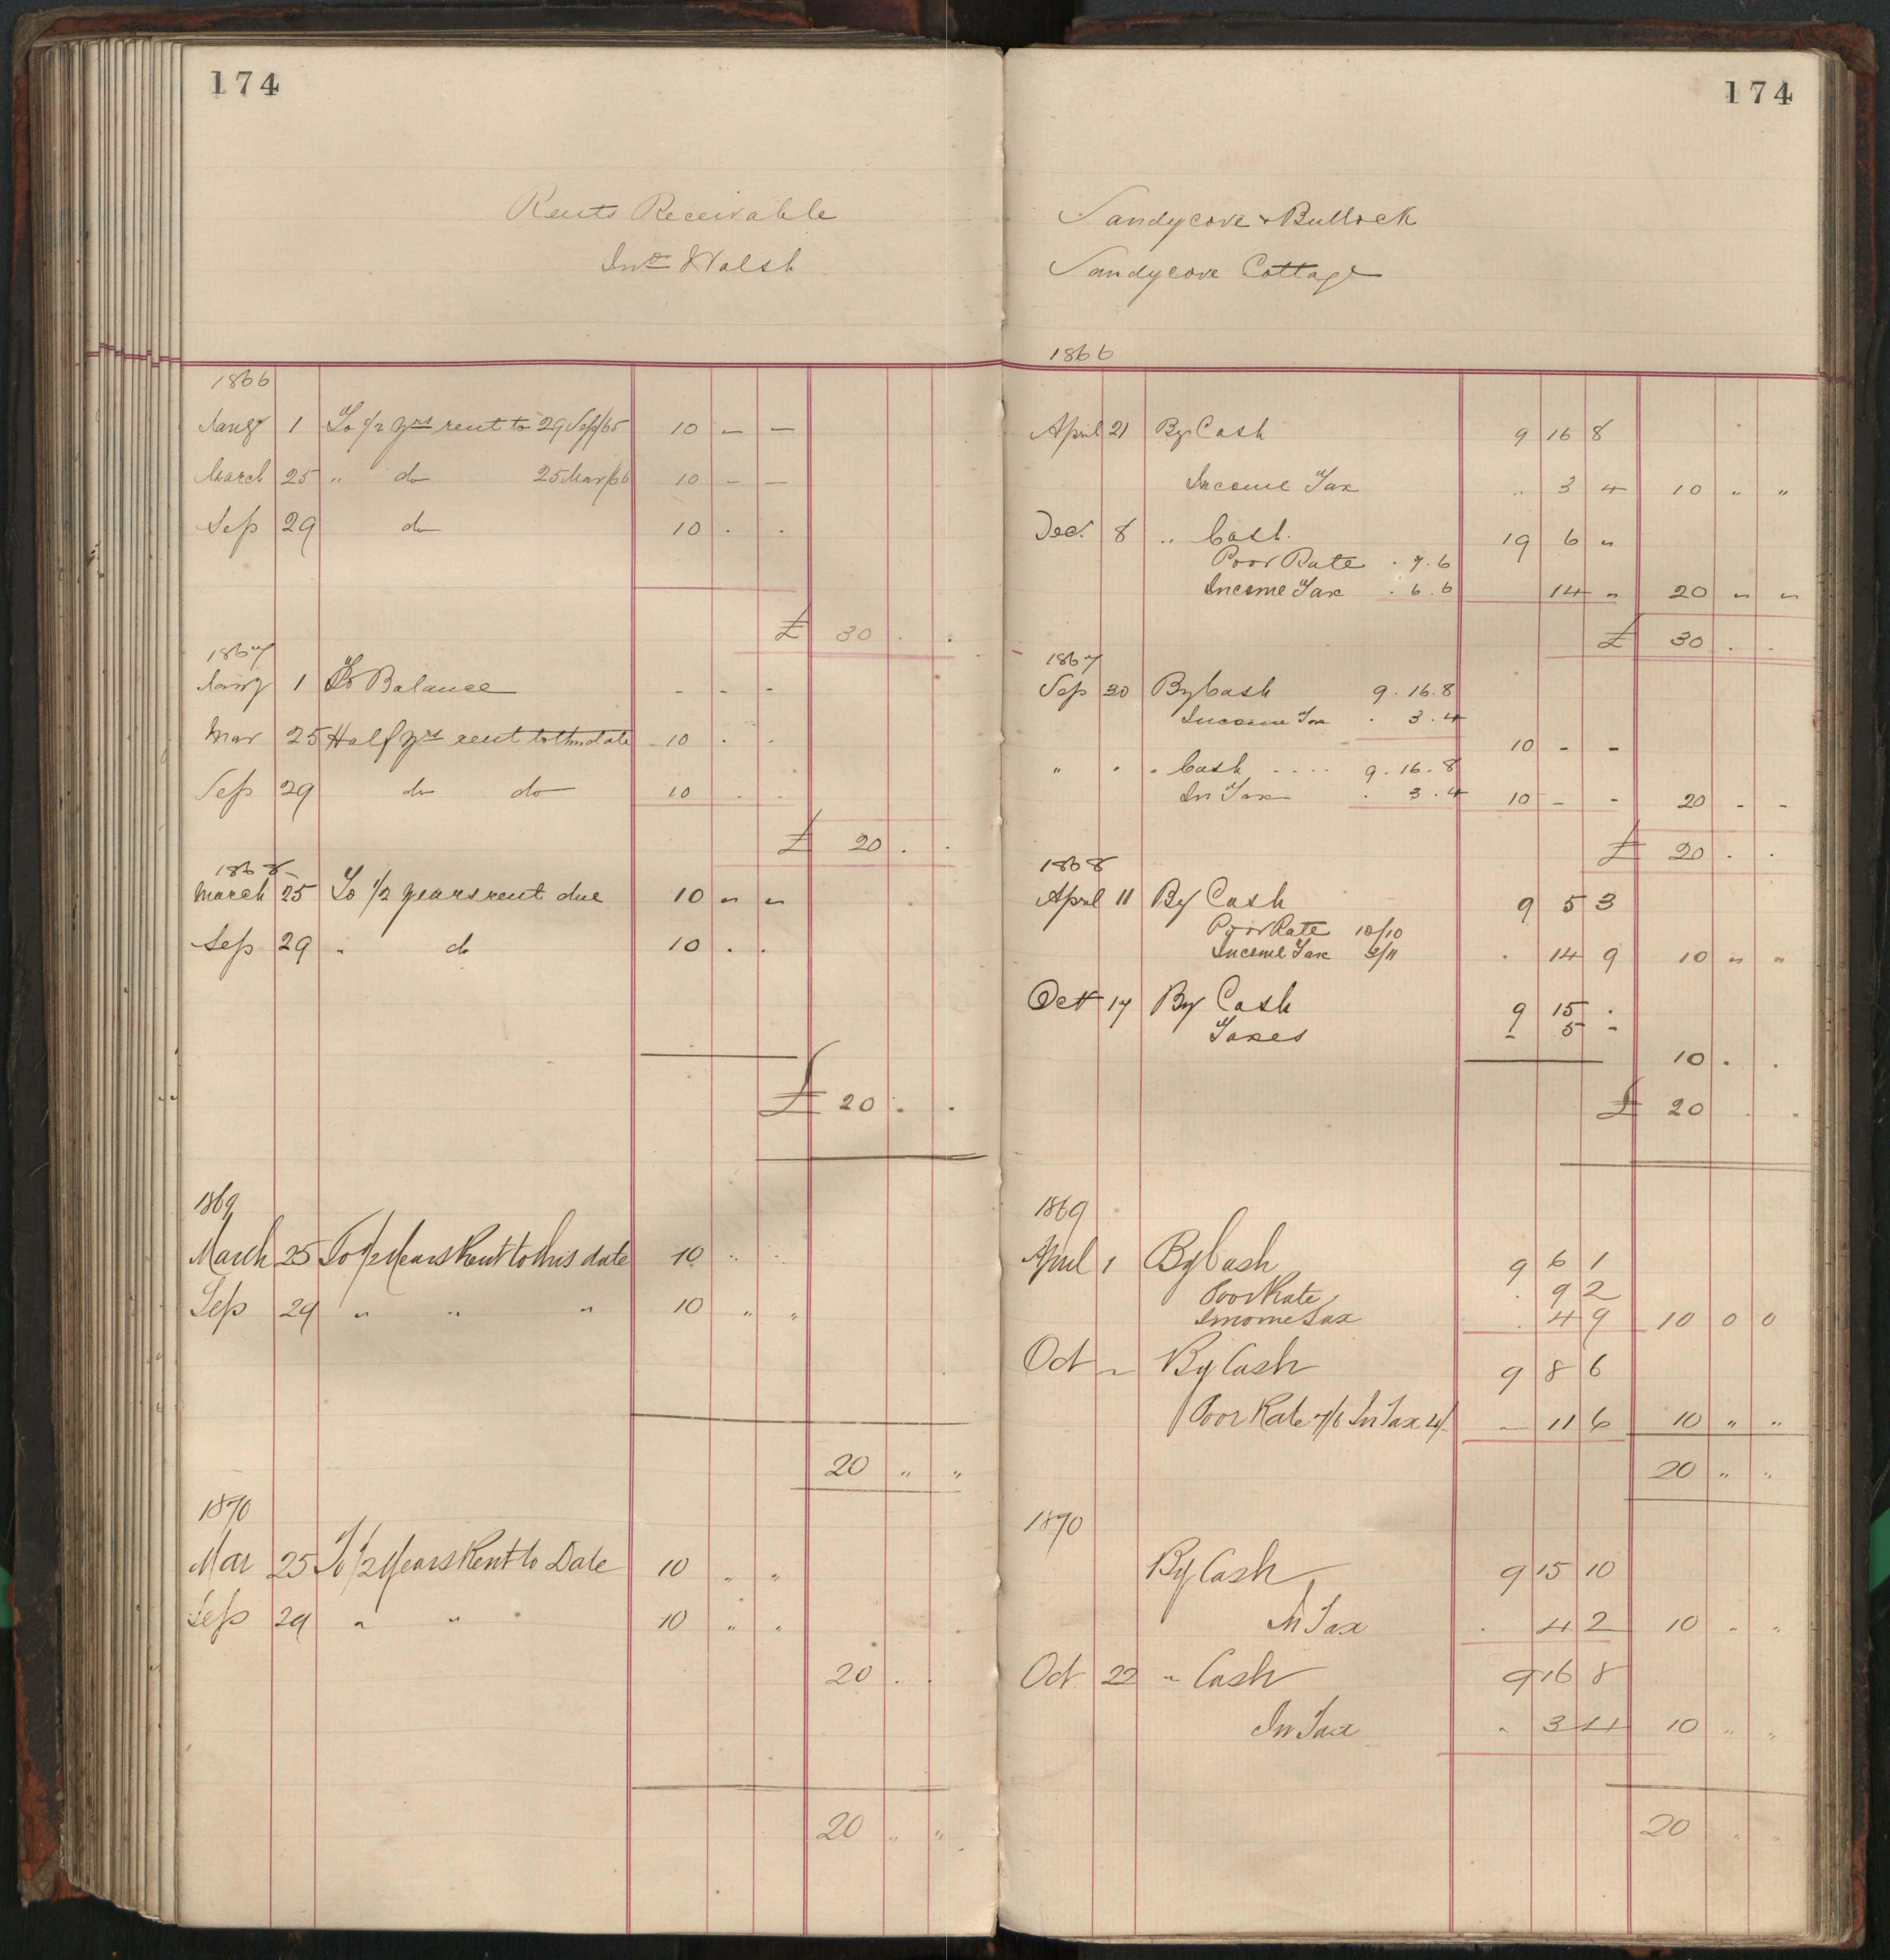 174
Rents Receivable
Jno Walsh
1866
Jany 1 To 1/2 yrs rent to 29 Sep/65 10 — —
March 25 " do 25 Mar/66 10 — —
Sep 29 do 10 . .
£ 30 . .
1867
Jany 1 To Balance - - -
Mar 25 Half yrs rent to this date 10 . .
Sep 29 do do 10 . .
£ 20 . .
1868
March 25 To 1/2 years rent due 10 " "
Sep 29 " do 10 . .
£ 20 . .
1869
March 25 To 1/2 Years Rent to this date 10 " "
Sep 29 " " " 10 " "
20 " "
1870
Mar 25 To 1/2 Years Rent to Date 10 " "
Sep 29 " " 10 " "
20 . .
20 " "
174
Sandycove & Bullock
Sandycove Cottage
1866
April 21 By Cash 9 16 8
Income Tax .. 3 4 10 " "
Dec. 8 " Cash. 19 6 "
Poor Rate . 7 . 6
Income Tax . 6 . 6 14 " 20 " "
£ 30 . .
1867
Sep 30 By Cash 9 . 16 . 8
Income Tax . 3 . 4
10 - -
" . . Cash .... 9 . 16 . 8
In Tax . 3 . 4 10 - - 20 - -
£ 20 . .
1868
April 11 By Cash 9 5 3
Poor Rate 10/10
Income Tax 3/11 . 14 9 10 " "
Oct 17 By Cash 9 15 .
Taxes - 5 -
10 . .
£ 20 . .
1869
April 1 By Cash 9 6 1
Poor Rate . 9 2
Income Tax . 4 9 10 0 0
Oct " By Cash 9 8 6
Poor Rate 7/6 In Tax 4/ — 11 6 10 " "
20 " "
1870
By Cash 9 15 10
In Tax . 4 2 10 " "
Oct 22 " Cash 9 16 8
In Tax " 3 4 10 " "
20 " "